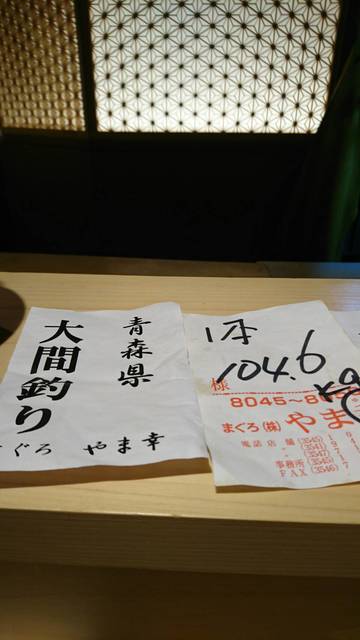 青森県
大間釣り
まぐろ やま幸
1本
104.6
kg
様
8045～8
まぐろ(株)やま
電話店舗
(3545)
(3541)
(3547)
事務所(3545)
FAX(3546)